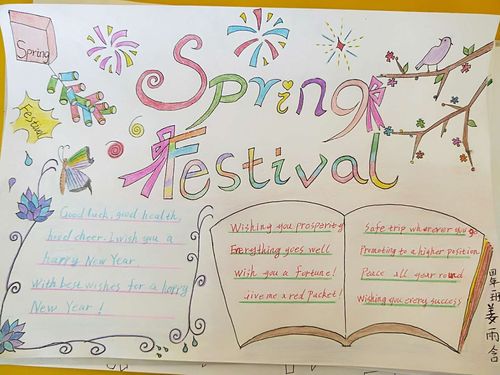 Spring
Festival
Spring
Festival
Good luck, good health,
hood cheer. I wish you a
happy New Year
With best wishes for a happy
New Year!
Wishing you prosperity
Everything goes well
Wish you a fortune!
Give me a red packet!
Safe trip wherever you go
Promoting to a higher position
Peace all year round
Wishing you every success
姜雨含